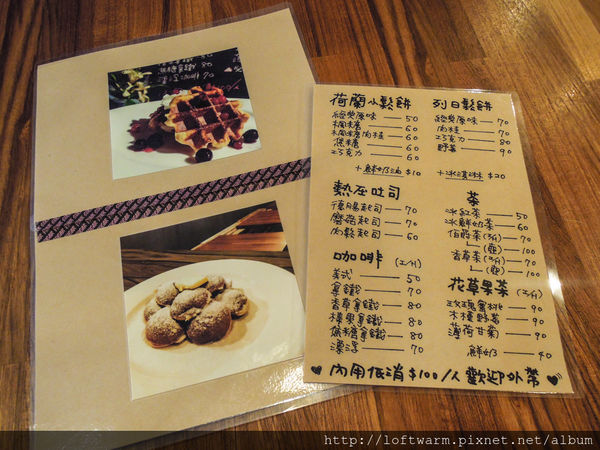 荷蘭小鬆餅
經典原味 — 50
楓糖 — 60
楓糖肉桂 — 60
煉糖 — 60
巧克力 — 60
+鮮奶油 $10
熱压吐司
德腸起司 — 70
蘑菇起司 — 70
肉鬆起司 — 60
咖啡 (I/H)
美式 — 50
拿鐵 — 70
香草拿鐵 — 80
榛果拿鐵 — 80
焦糖拿鐵 — 80
漂浮 — 70
列日鬆餅
經典原味 — 70
肉桂 — 70
巧克力 — 80
野莓 — 90
+冰淇淋 $20
茶
冰紅茶 — 50
冰鮮奶茶 — 60
伯爵茶(I/H) — 70
(壺) — 100
香草茶(I/H) — 70
(壺) — 100
花草果茶 (I/H)
玫瑰蜜桃 — 90
木槿野莓 — 90
薄荷甘菊 — 90
鮮奶 — 40
♥ 內用低消 $100/人 歡迎外帶 ♥
焦糖拿鐵 80
漂浮咖啡 70
http://loftwarm.pixnet.net/album